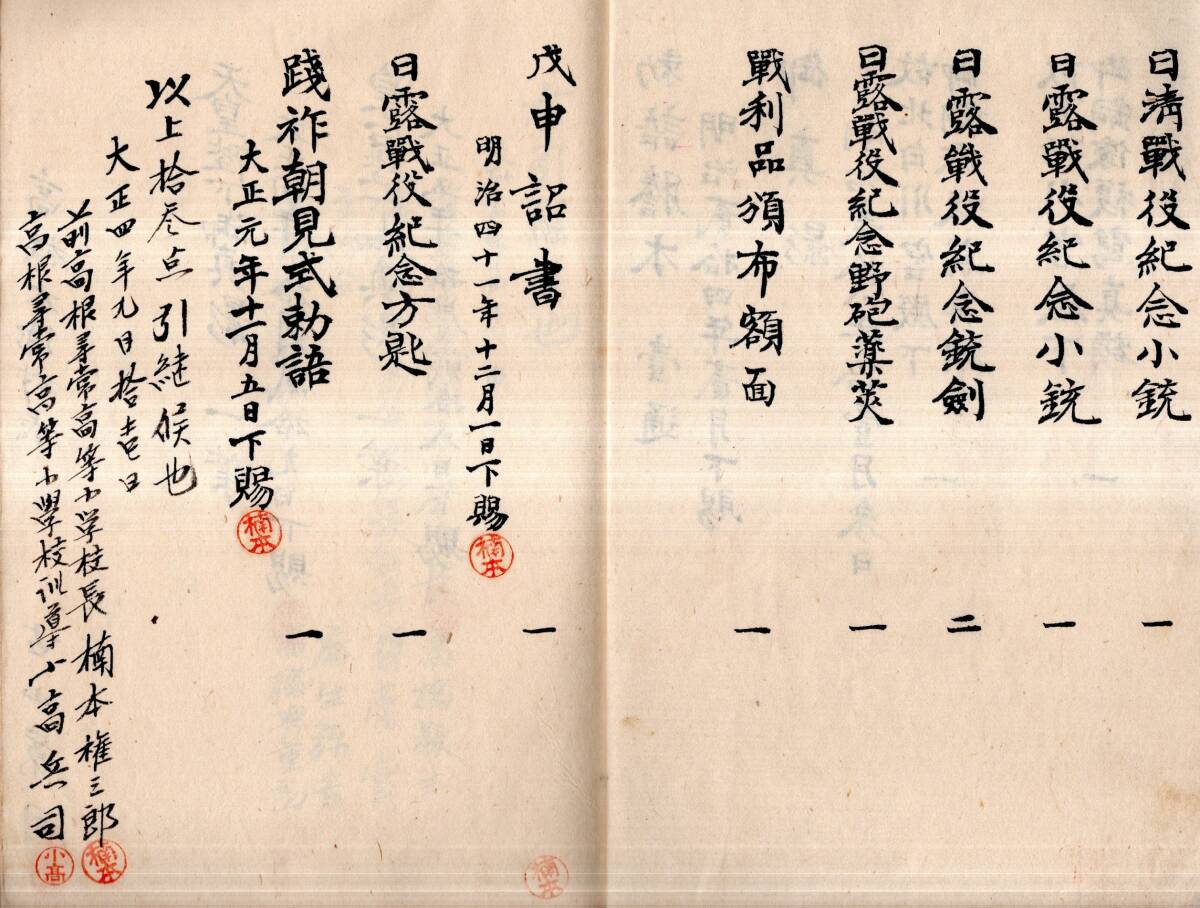 日清戰役紀念小銃 一
日露戰役紀念小銃 一
日露戰役紀念銃劍 二
日露戰役紀念野砲薬莢 一
戰利品頒布額面 一
戊申詔書 一
明治四十一年十二月一日下賜 楠本
日露戰役紀念方匙 一
踐祚朝見式勅語 一
大正元年十二月五日下賜 楠本
以上拾叄点引継候也
大正四年九月拾壱日
前高根尋常高等小学校長 楠本権三郎 楠本
高根尋常高等小學校訓導 小高兵司 小髙
楠本